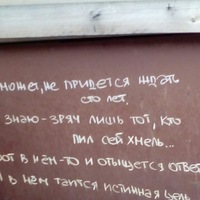 может, не придется ждать
сто лет.
знаю - зряч лишь тот, кто
пил сей хмель...
вот в нем-то и отыщется ответ
и в нем таится истинная цель